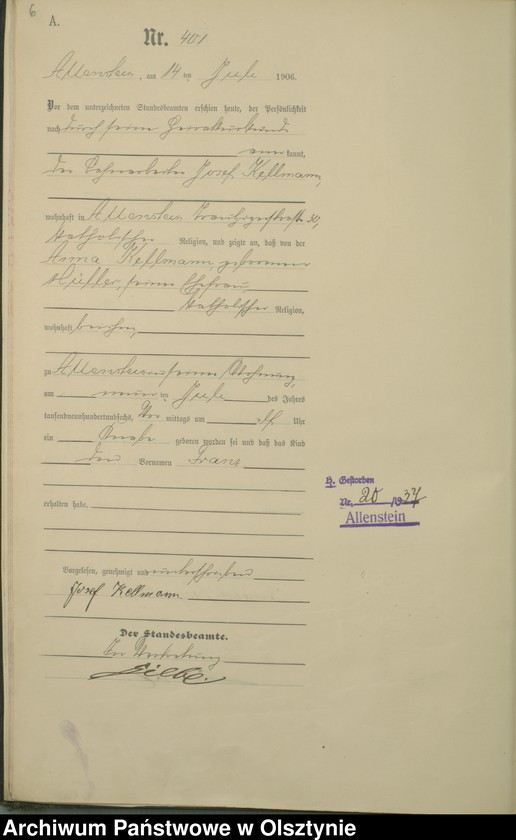 6
A.
Nr. 401
Allenstein, am 14 ten Juli 1906.
Vor dem unterzeichneten Standesbeamten erschien heute, der Persönlichkeit
nach durch seine Heiratsurkunde
aner kannt,
der Bahnarbeiter Josef Kellmann,
wohnhaft in Allenstein 30,
katholischer Religion, und zeigte an, daß von der
Anna Kellmann geborenen
seiner Ehefrau,
katholischer Religion,
wohnhaft bei ihm,
zu Allenstein in seiner Wohnung,
am neun ten Juli des Jahres
tausendneunhundertundsechs, Vor mittags um elf Uhr
ein Knabe geboren worden sei und daß das Kind
den Vornamen Franz
erhalten habe.
Vorgelesen, genehmigt und unterschrieben
Josef Kellmann
Der Standesbeamte.
In Vertretung
H. Gestorben
Nr. 20 /1937
Allenstein
Archiwum Państwowe w Olsztynie